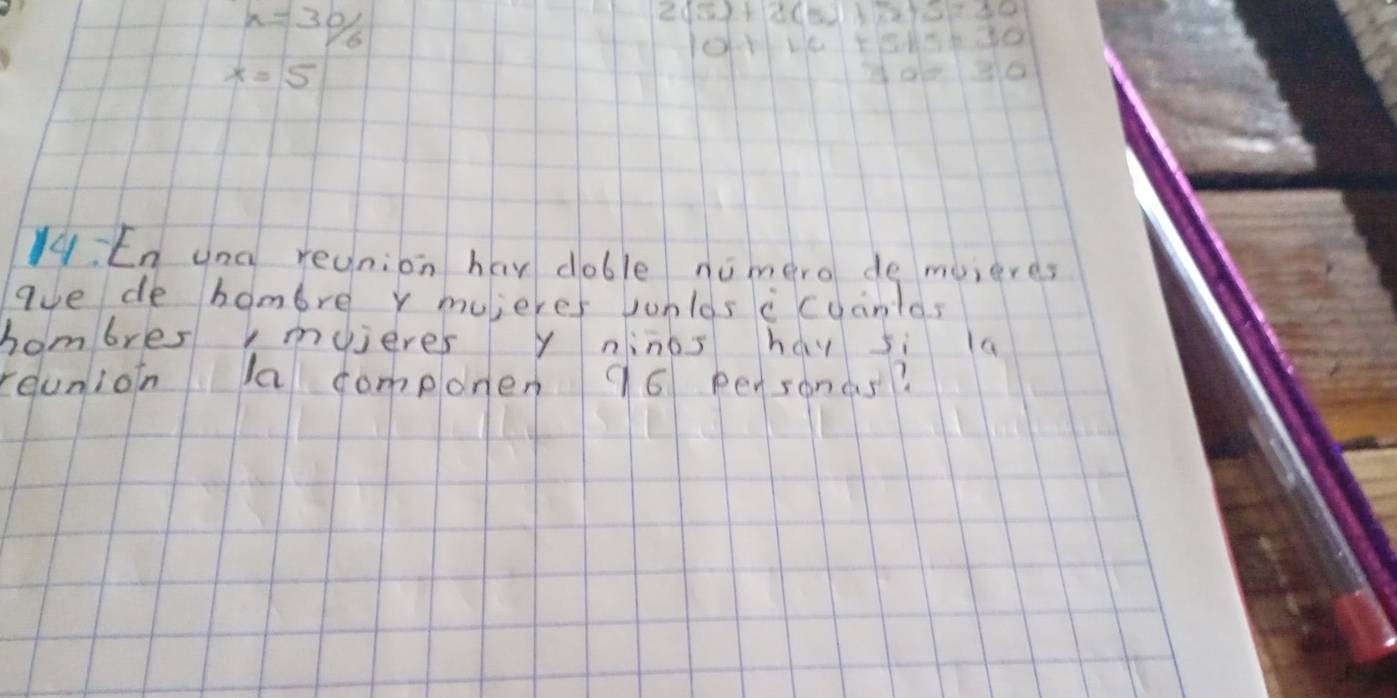 x=30/6
x=5
2(5)+2(5)+5+5=30
10+10+5+5=30
30=30
14. En una reunión hay doble número de mujeres
que de hombre y mujeres juntos ¿Cuántos
hombres, mujeres y niños hay si la
reunion la componen 96 personas?